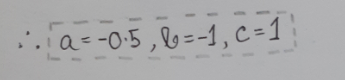 ∴ a = -0.5, b = -1, c = 1